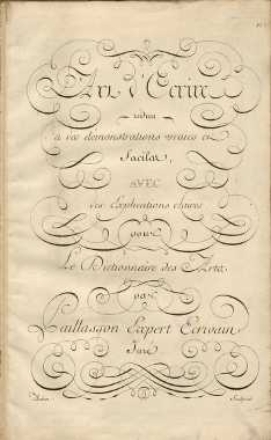 L'Art d'Ecrire
réduit
à des démonstrations vraies et
faciles,
AVEC
des Explications claires
pour
Le Dictionnaire des Arts.
par
Paillasson Expert Ecrivain
Juré
Aubin Sculpsit